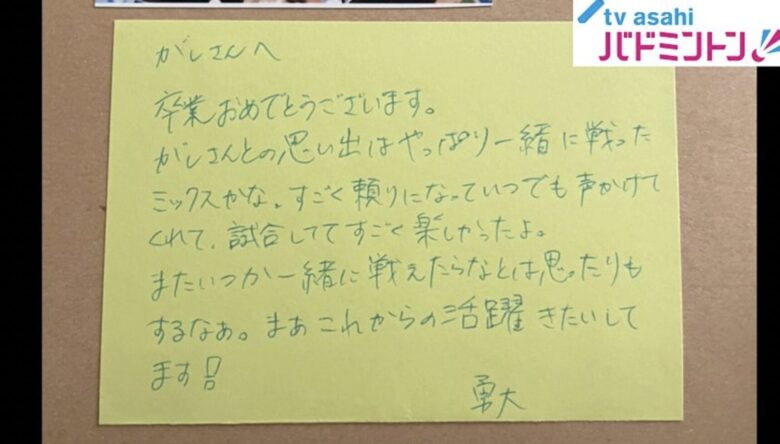 tv asahi
バドミントン
がしさんへ
卒業おめでとうございます。
がしさんとの思い出はやっぱり一緒に戦った
ミックスかな。すごく頼りになっていつでも声かけて
くれて、試合しててすごく楽しかったよ。
またいつか一緒に戦えたらなとは思ったりも
するなぁ。まあこれからの活躍きたいして
ます!!
勇大